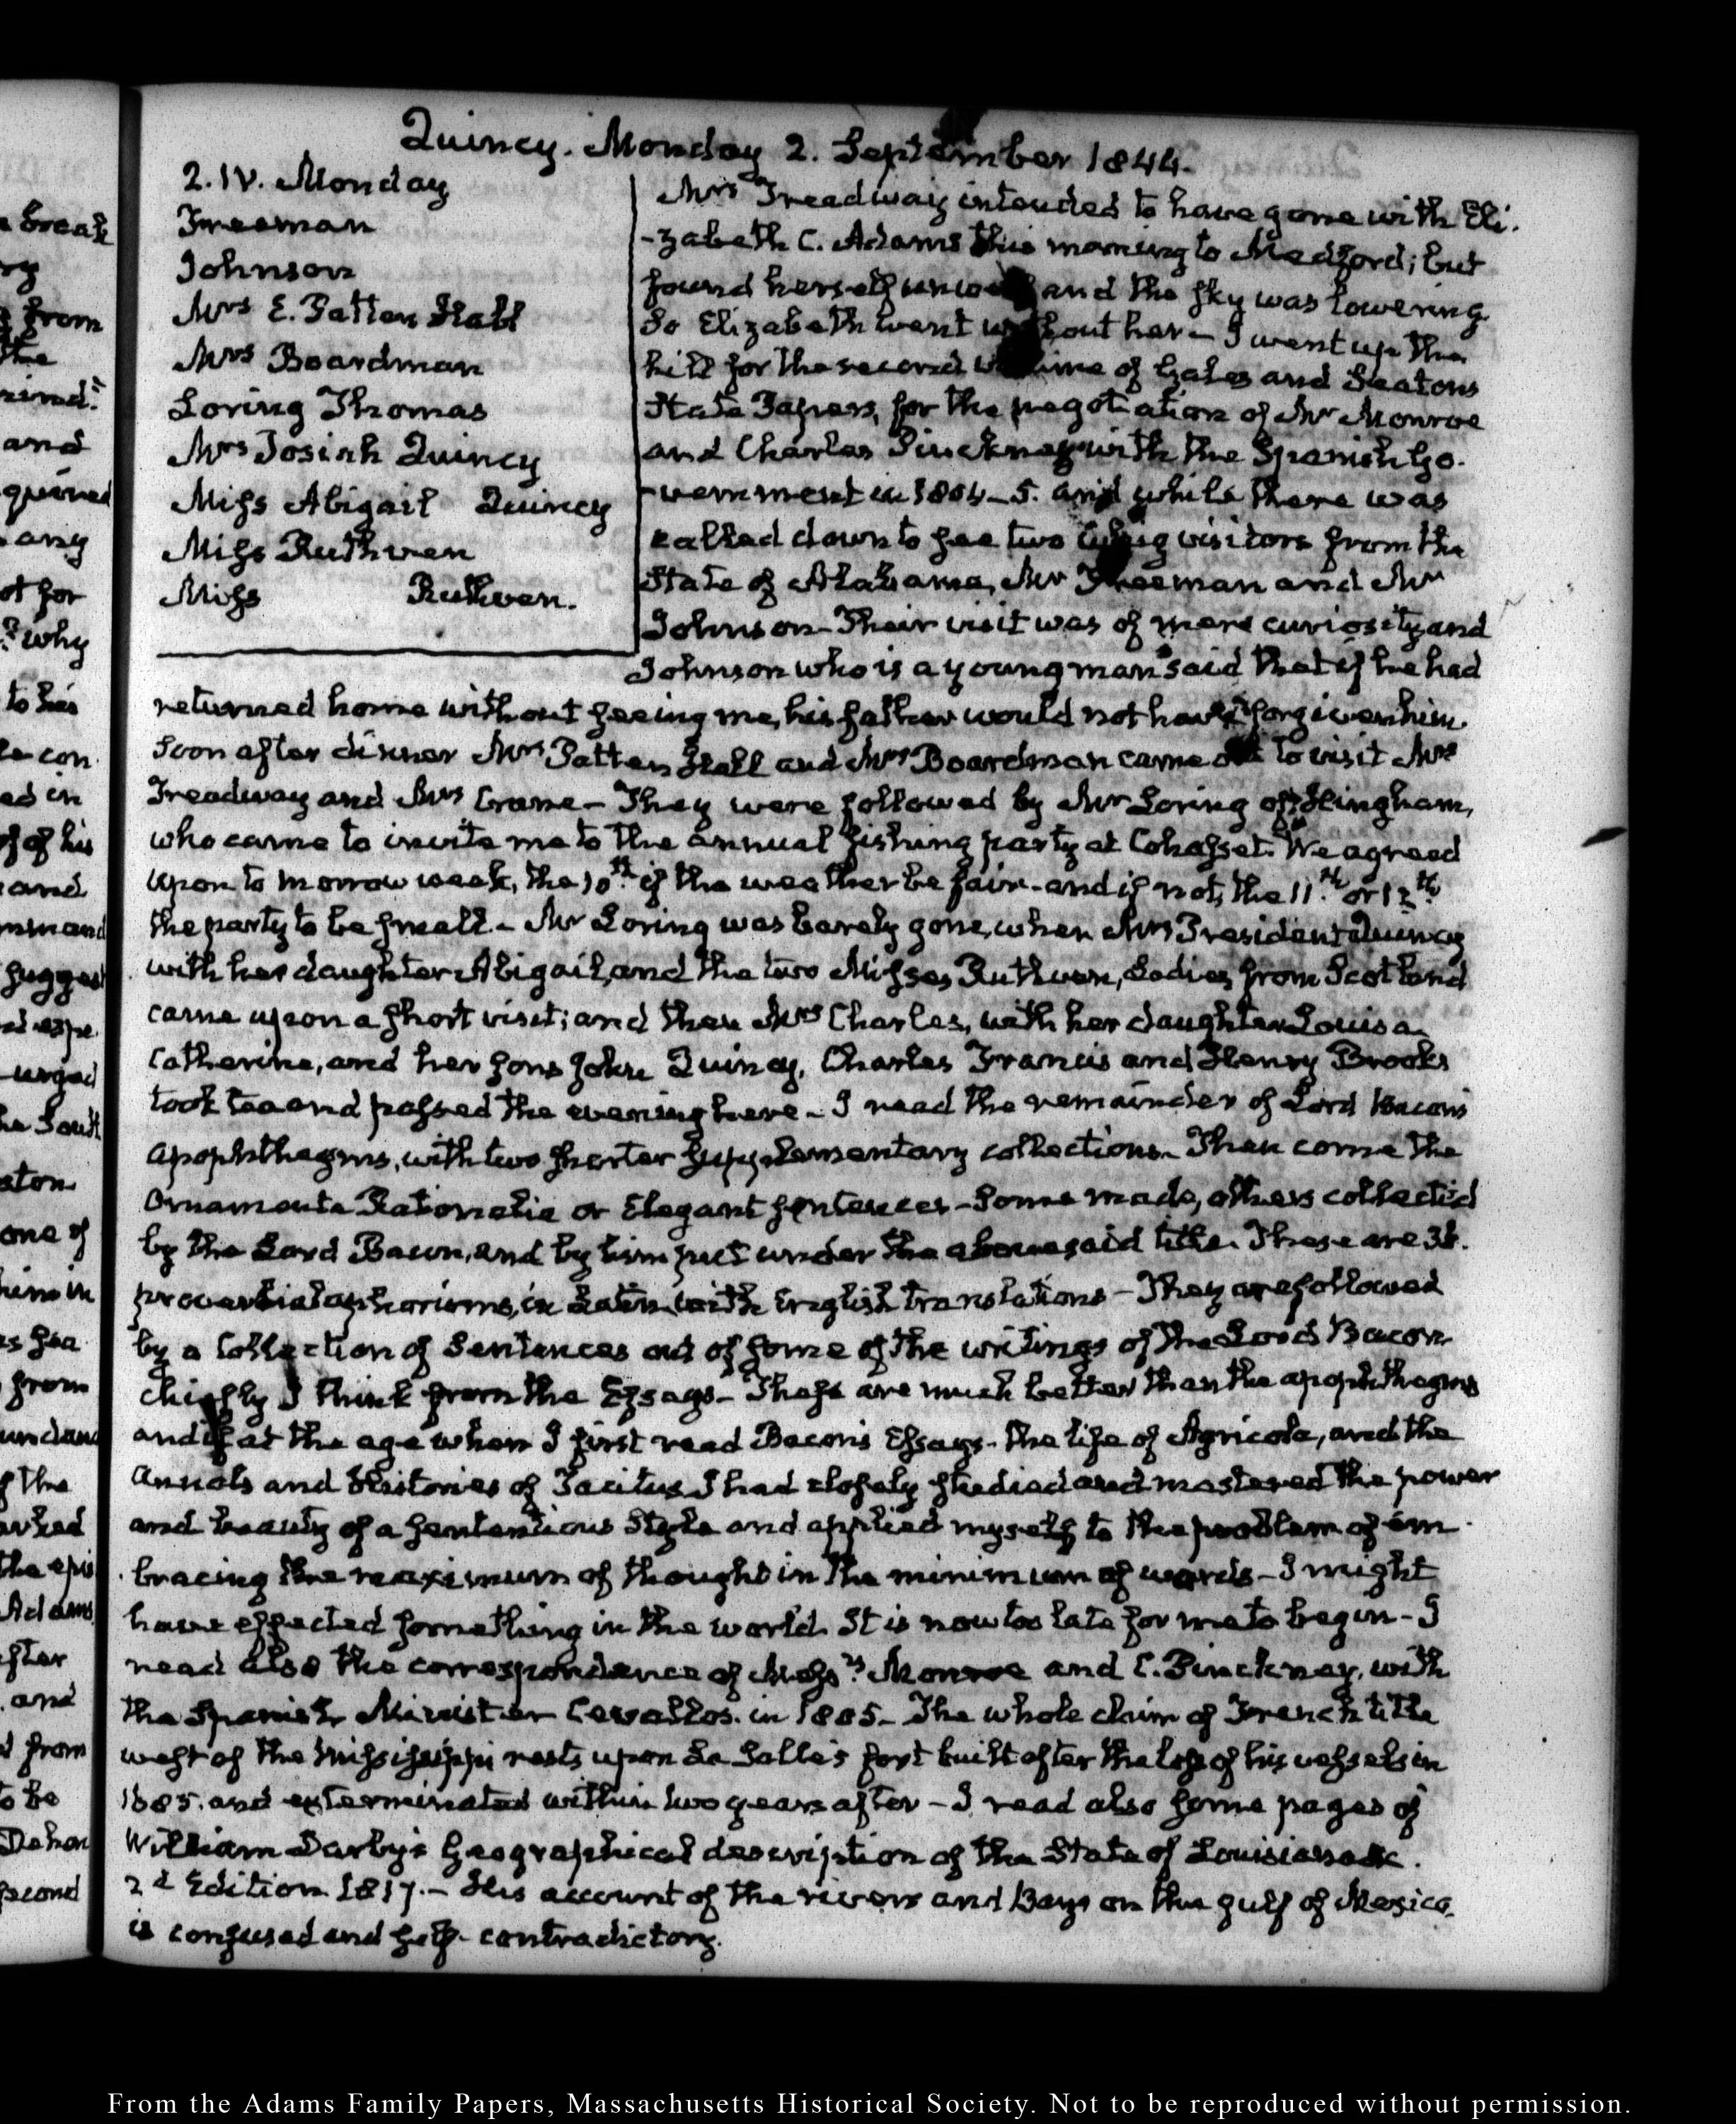 Quincy. Monday 2. September 1844.
2. IV. Monday
Freeman
Johnson
Mrs E. Patten Hall
Mrs Boardman
Loring Thomas
Mrs Josiah Quincy
Miss Abigail Quincy
Miss Ruthven
Miss Ruthven.
Mrs Treadway intended to have gone with Eli-
-zabeth C. Adams this morning to Medford; but
found herself unwell and the sky was lowering
So Elizabeth went without her - I went up the
hill for the second volume of Gales and Seatons
State Papers, for the negotiation of Mr Monroe
and Charles Pinckney with the Spanish Go-
-vernment in 1804-5. and while there was
called down to see two whig visitors from the
State of Alabama, Mr Freeman and Mr
Johnson - Their visit was of mere curiosity and
Johnson who is a young man said that if he had
returned home without seeing me, his father would not have forgiven him.
Soon after dinner Mrs Patten Hall and Mrs Boardman came out to visit Mrs
Treadway and Mrs Crane - They were followed by Mr Loring of Hingham,
who came to invite me to the annual fishing party at Cohasset. We agreed
upon to morrow week, the 10th if the weather be fair - and if not, the 11th or 12th
the party to be small - Mr Loring was barely gone, when Mrs President Quincy
with her daughter Abigail, and the two Misses Ruthven, Ladies from Scotland
came upon a short visit; and then Mrs Charles, with her daughter Louisa
Catherine, and her sons John Quincy, Charles Francis and Henry Brooks
took tea and passed the evening here - I read the remainder of Lord Bacon's
apophthegms, with two shorter supplementary collections - Then come the
Ornamenta Rationalia or Elegant sentences - some made, others collected
by the Lord Bacon, and by him put under the abovesaid title. These are
proverbial aphorisms, in Latin, with English translations - They are followed
by a Collection of Sentences out of some of the writings of the Lord Bacon
chiefly I think from the Essays - These are much better than the apophthegms
and if at the age when I first read Bacon's Essays - the life of Agricola, and the
Annals and Histories of Tacitus I had closely studied and mastered the power
and beauty of a sententious Style and applied myself to the problem of em-
bracing the maximum of thought in the minimum of words - I might
have effected something in the world. It is now too late for me to begin - I
read also the correspondence of Messrs Monroe and C. Pinckney, with
the Spanish Minister Cevallos. in 1805 - The whole claim of French title
west of the Mississippi rests upon La Salle's fort built after the loss of his vessels in
1685. and exterminated within two years after - I read also some pages of
William Darby's Geographical description of the State of Louisiana &c.
2d Edition 1817. - His account of the rivers and Bays on the gulf of Mexico
is confused and self-contradictory.
break
from
the
and
any
why
to his
ed in
of his
and
urged
one of
him in
from
of the
Adams
and
from
to be
second
From the Adams Family Papers, Massachusetts Historical Society. Not to be reproduced without permission.